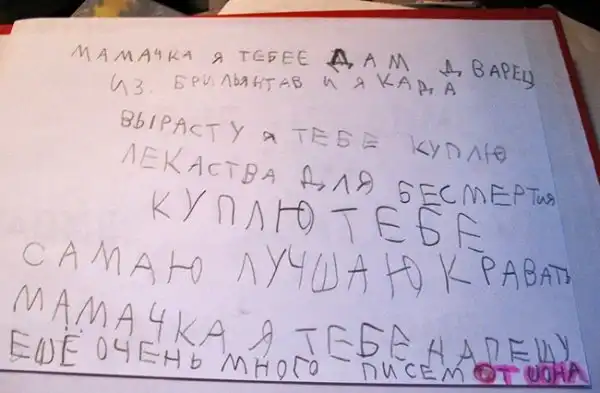 МАМАЧКА Я ТЕБЕЕ ДАМ ДВАРЕЦ
ИЗ БРИЛЬЯНТАВ И Я КАДА
ВЫРАСТУ Я ТЕБЕ КУПЛЮ
ЛЕКАСТВА ДЛЯ БЕСМЕРТИЯ
КУПЛЮ ТЕБЕ
САМАЮ ЛУЧШАЮ КРАВАТЬ
МАМАЧКА Я ТЕБЕ НАПЕШУ
ЕЩЁ ОЧЕНЬ МНОГО ПИСЕМ ОТ ИОНА